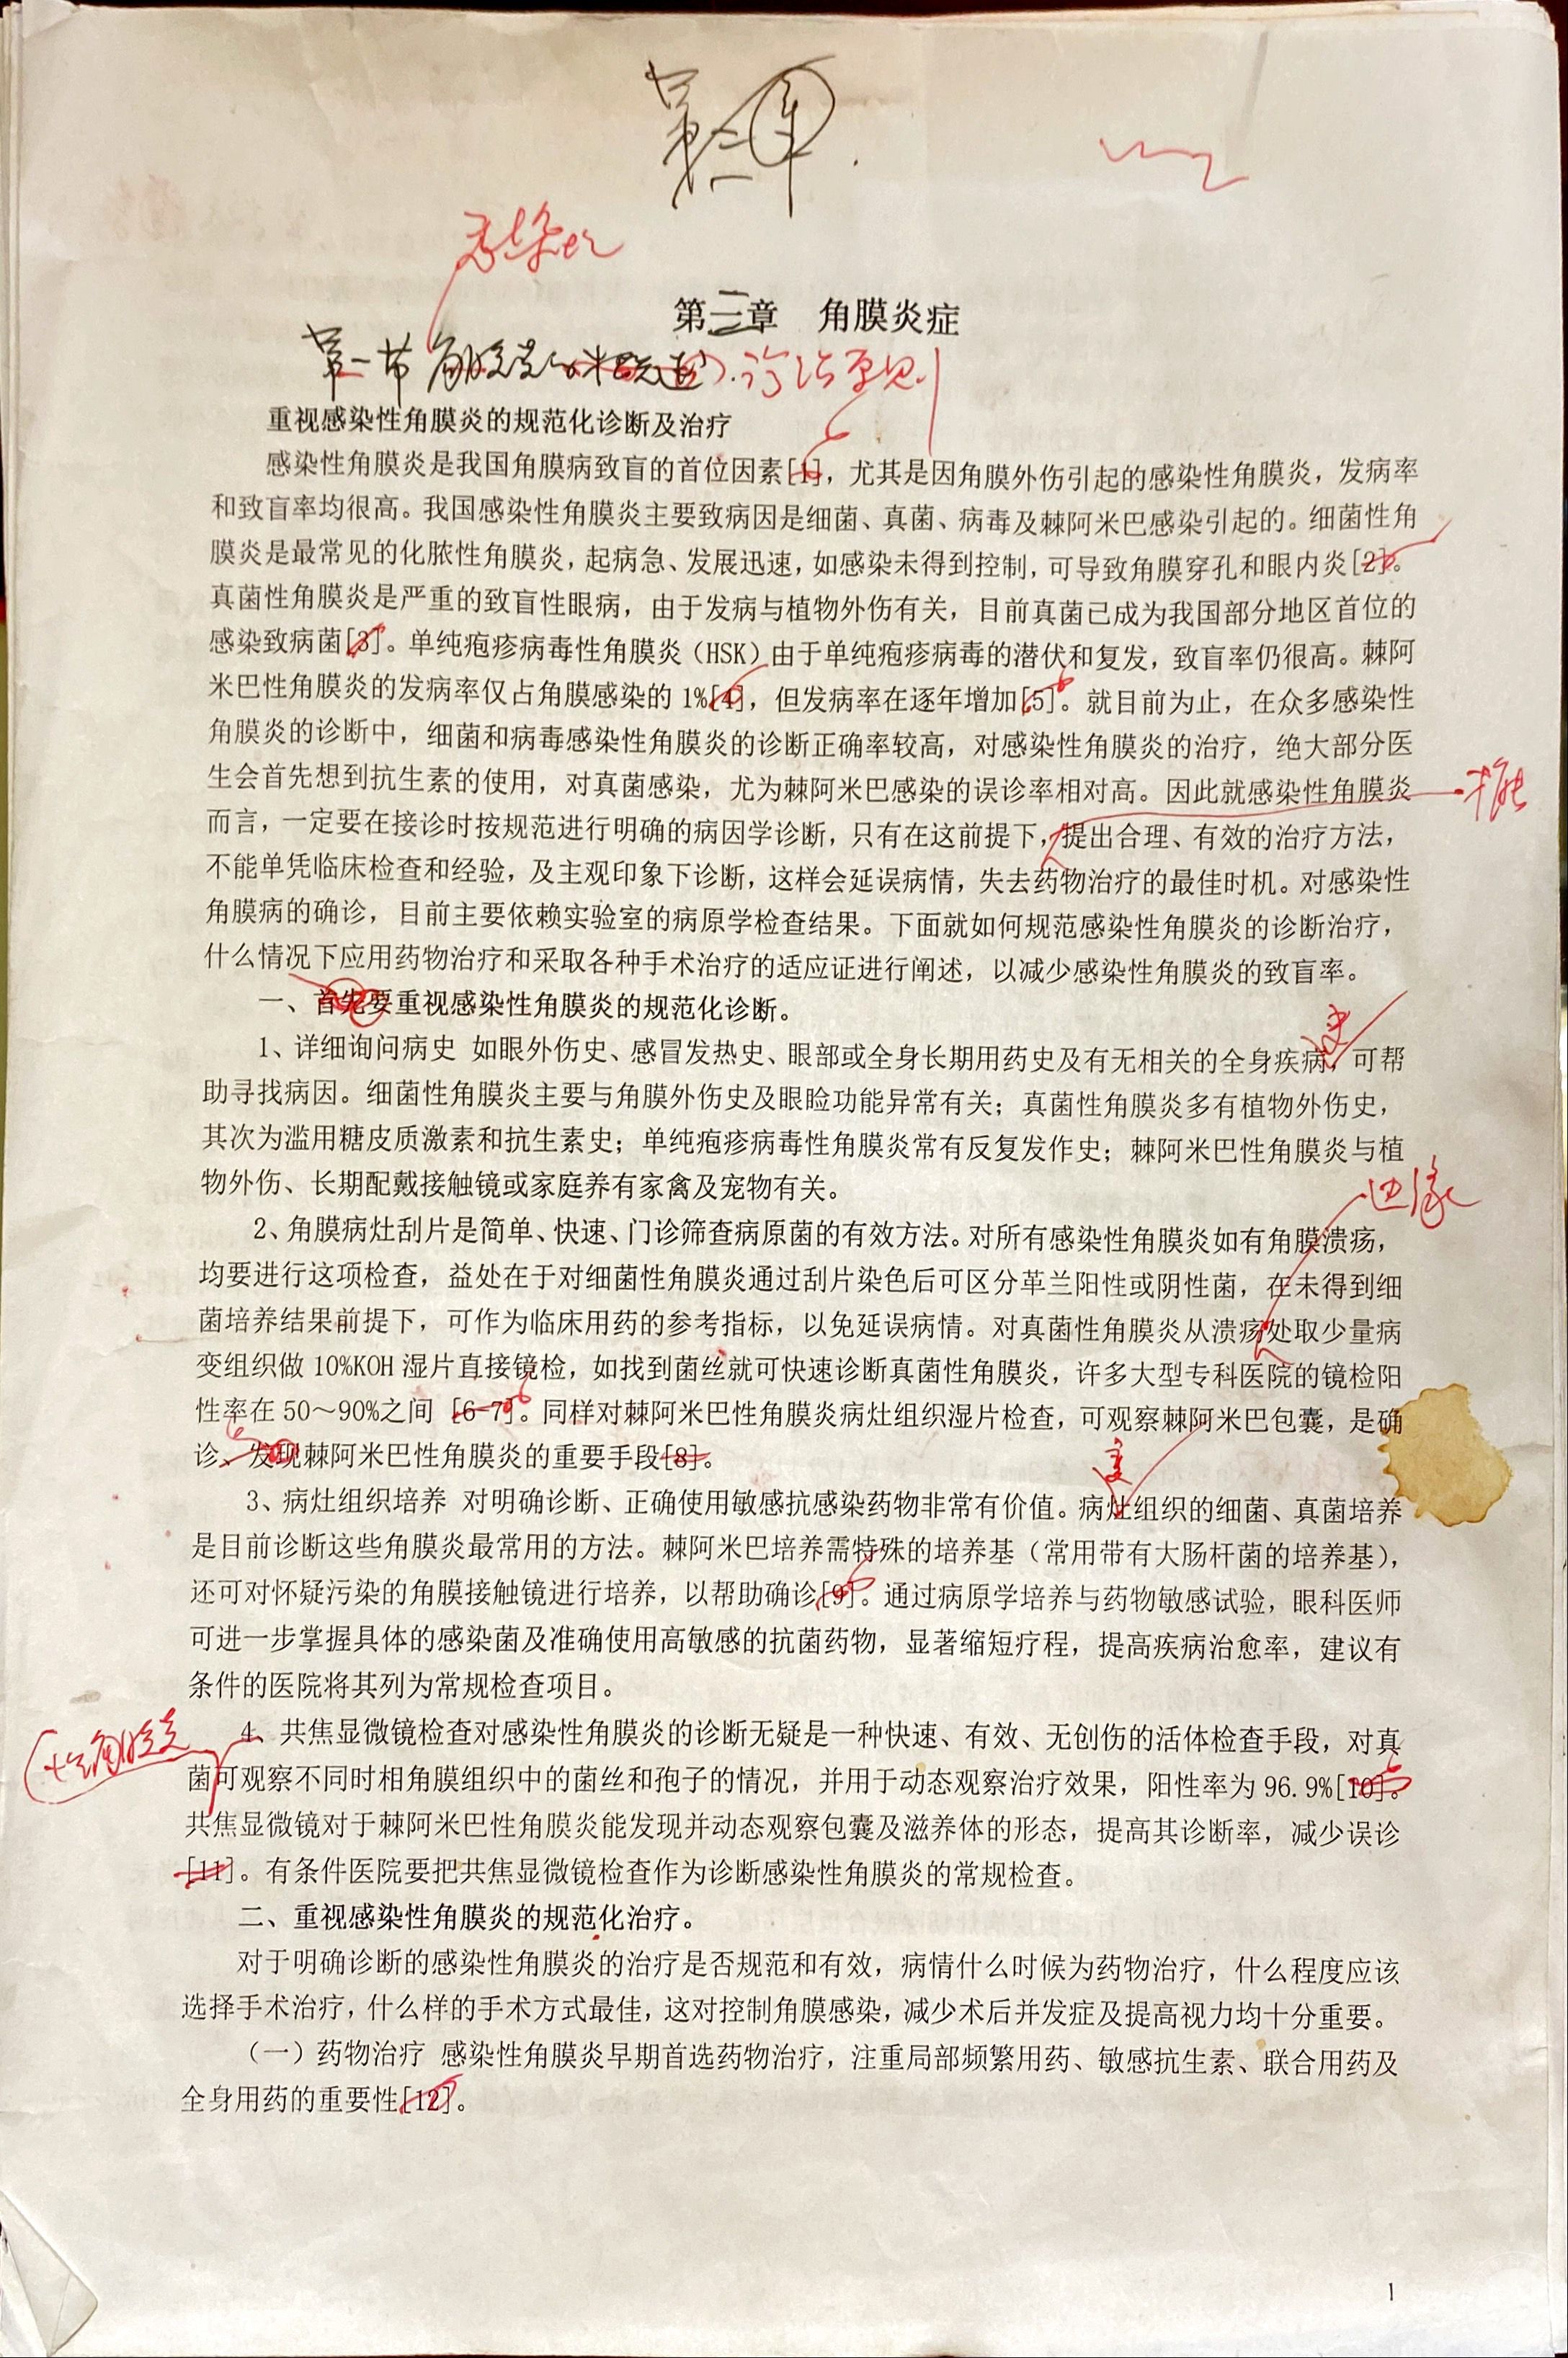 第二章
感染性
第二章 角膜炎症
第一节 角膜炎的概述 诊治原则
重视感染性角膜炎的规范化诊断及治疗
感染性角膜炎是我国角膜病致盲的首位因素[1]，尤其是因角膜外伤引起的感染性角膜炎，发病率
和致盲率均很高。我国感染性角膜炎主要致病因是细菌、真菌、病毒及棘阿米巴感染引起的。细菌性角
膜炎是最常见的化脓性角膜炎，起病急、发展迅速，如感染未得到控制，可导致角膜穿孔和眼内炎[2]。
真菌性角膜炎是严重的致盲性眼病，由于发病与植物外伤有关，目前真菌已成为我国部分地区首位的
感染致病菌[3]。单纯疱疹病毒性角膜炎（HSK）由于单纯疱疹病毒的潜伏和复发，致盲率仍很高。棘阿
米巴性角膜炎的发病率仅占角膜感染的 1%[4]，但发病率在逐年增加[5]。就目前为止，在众多感染性
角膜炎的诊断中，细菌和病毒感染性角膜炎的诊断正确率较高，对感染性角膜炎的治疗，绝大部分医
生会首先想到抗生素的使用，对真菌感染，尤为棘阿米巴感染的误诊率相对高。因此就感染性角膜炎
才能
而言，一定要在接诊时按规范进行明确的病因学诊断，只有在这前提下，提出合理、有效的治疗方法，
不能单凭临床检查和经验，及主观印象下诊断，这样会延误病情，失去药物治疗的最佳时机。对感染性
角膜病的确诊，目前主要依赖实验室的病原学检查结果。下面就如何规范感染性角膜炎的诊断治疗，
什么情况下应用药物治疗和采取各种手术治疗的适应证进行阐述，以减少感染性角膜炎的致盲率。
一、首先要重视感染性角膜炎的规范化诊断。
1、详细询问病史 如眼外伤史、感冒发热史、眼部或全身长期用药史及有无相关的全身疾病，可帮
助寻找病因。细菌性角膜炎主要与角膜外伤史及眼睑功能异常有关；真菌性角膜炎多有植物外伤史，
其次为滥用糖皮质激素和抗生素史；单纯疱疹病毒性角膜炎常有反复发作史；棘阿米巴性角膜炎与植
物外伤、长期配戴接触镜或家庭养有家禽及宠物有关。
边缘
2、角膜病灶刮片是简单、快速、门诊筛查病原菌的有效方法。对所有感染性角膜炎如有角膜溃疡，
均要进行这项检查，益处在于对细菌性角膜炎通过刮片染色后可区分革兰阳性或阴性菌，在未得到细
菌培养结果前提下，可作为临床用药的参考指标，以免延误病情。对真菌性角膜炎从溃疡处取少量病
变组织做 10%KOH 湿片直接镜检，如找到菌丝就可快速诊断真菌性角膜炎，许多大型专科医院的镜检阳
性率在 50～90%之间 [6-7]。同样对棘阿米巴性角膜炎病灶组织湿片检查，可观察棘阿米巴包囊，是确
诊、发现棘阿米巴性角膜炎的重要手段[8]。
变
3、病灶组织培养 对明确诊断、正确使用敏感抗感染药物非常有价值。病灶组织的细菌、真菌培养
是目前诊断这些角膜炎最常用的方法。棘阿米巴培养需特殊的培养基（常用带有大肠杆菌的培养基），
还可对怀疑污染的角膜接触镜进行培养，以帮助确诊[9]。通过病原学培养与药物敏感试验，眼科医师
可进一步掌握具体的感染菌及准确使用高敏感的抗菌药物，显著缩短疗程，提高疾病治愈率，建议有
条件的医院将其列为常规检查项目。
性角膜炎
4、共焦显微镜检查对感染性角膜炎的诊断无疑是一种快速、有效、无创伤的活体检查手段，对真
菌可观察不同时相角膜组织中的菌丝和孢子的情况，并用于动态观察治疗效果，阳性率为 96.9%[10]。
共焦显微镜对于棘阿米巴性角膜炎能发现并动态观察包囊及滋养体的形态，提高其诊断率，减少误诊
[11]。有条件医院要把共焦显微镜检查作为诊断感染性角膜炎的常规检查。
二、重视感染性角膜炎的规范化治疗。
对于明确诊断的感染性角膜炎的治疗是否规范和有效，病情什么时候为药物治疗，什么程度应该
选择手术治疗，什么样的手术方式最佳，这对控制角膜感染，减少术后并发症及提高视力均十分重要。
（一）药物治疗 感染性角膜炎早期首选药物治疗，注重局部频繁用药、敏感抗生素、联合用药及
全身用药的重要性[12]。
1